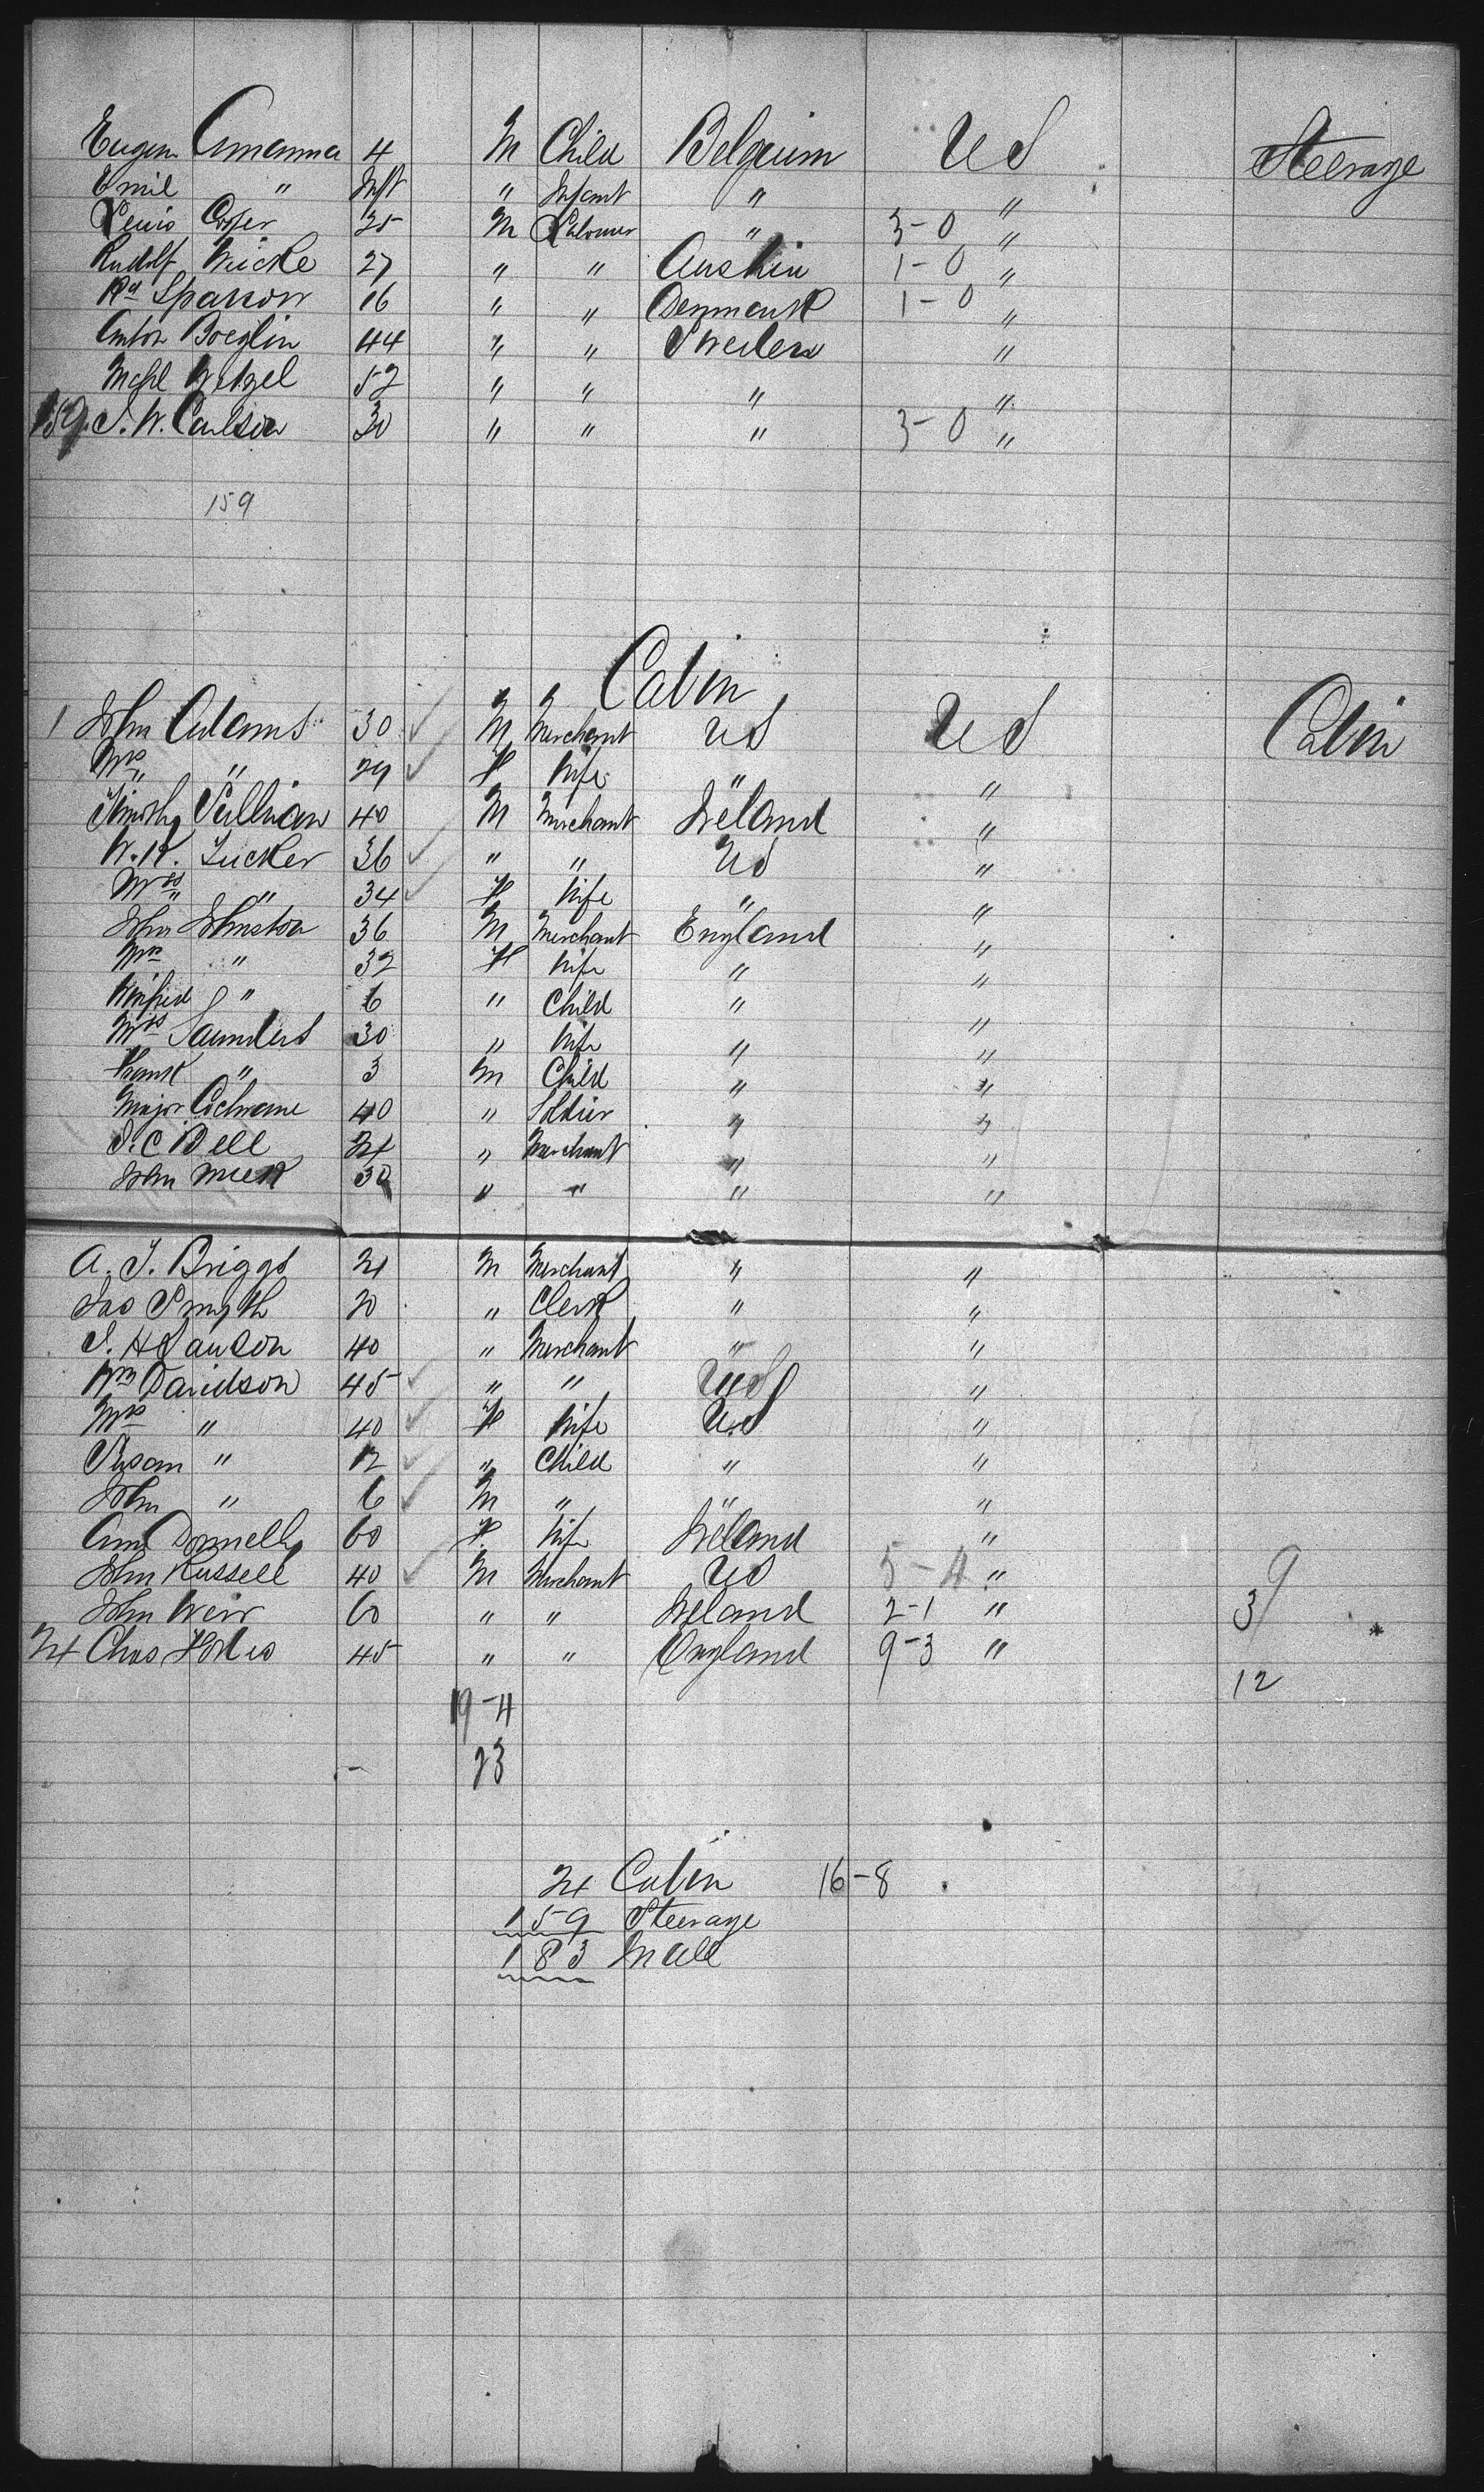 Eugen Amanna 4 M Child Belgium US Steerage
Emil " Inft " Infant " "
Lewis 25 M Labourer " 3-0 "
Rudolf Wicke 27 " " Austria 1-0 "
Rd Sparrow 16 " " Denmark 1-0 "
Anton Boeglin 44 " " Sweden "
Wetzel 52 " " " "
159. J. W. Carlson 30 " " " 3-0 "
159
Cabin
1 John Adams 30 M Merchant US US Cabin
Mrs " 29 F Wife " "
Timothy Sullivan 40 M Merchant Ireland "
W. H. Tucker 36 " " US "
Mrs " 34 F Wife " "
John Johnston 36 M Merchant England "
Mrs " 32 F Wife " "
Winfred " 6 " Child " "
Mrs Saunders 30 " Wife " "
Frank " 3 M Child " "
Major Cochrane 40 " Soldier " "
J. C Bell 24 " Merchant " "
John Meek 30 " " " "
A. J. Briggs 21 M Merchant " "
Jas Smyth 20 " Clerk " "
J. H Lawson 40 " Merchant " "
Wm Davidson 45 " " US "
Mrs " 40 F Wife US "
Susan " 12 " Child " "
John " 6 M " " "
Ann Donnelly 60 F Wife Ireland "
John Russell 40 M Merchant US 5-4 " 9
John Weir 60 " " Ireland 2-1 " 3
24 Chas 45 " " England 9-3 "
12
19-4
23
24 Cabin 16-8
159 Steerage
183 In all